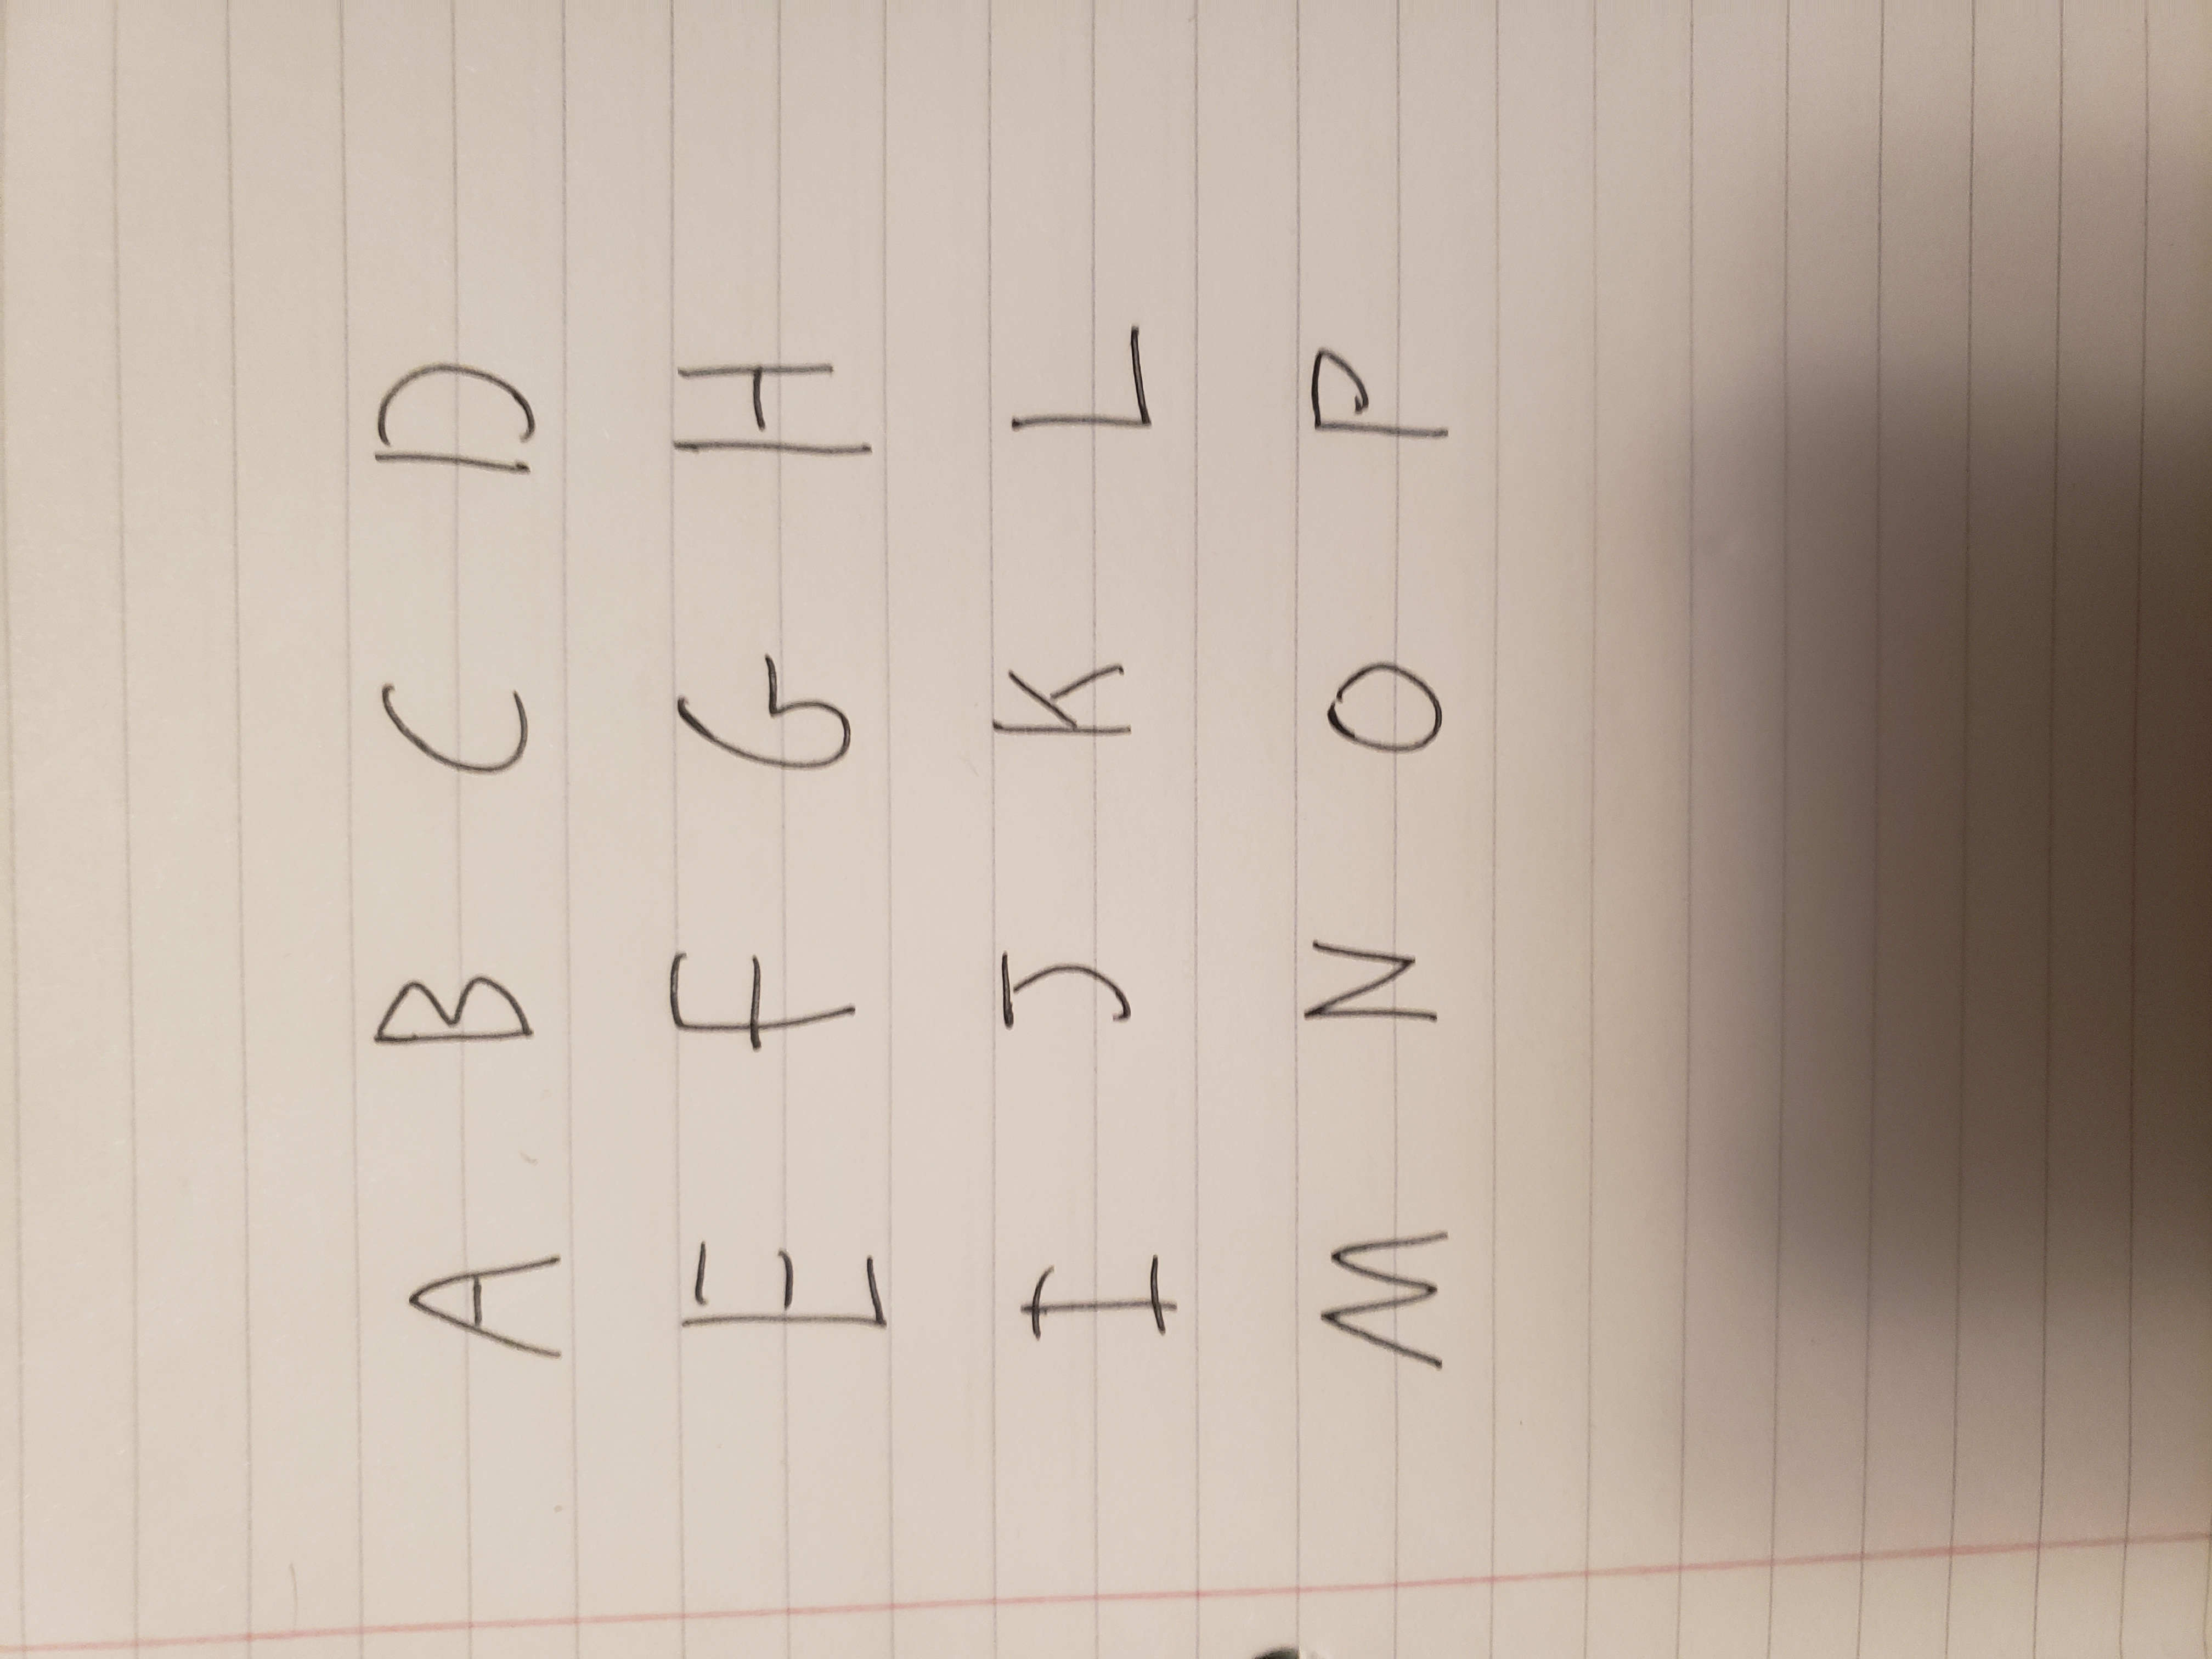 A B C D
E F G H
I J K L
M N O P